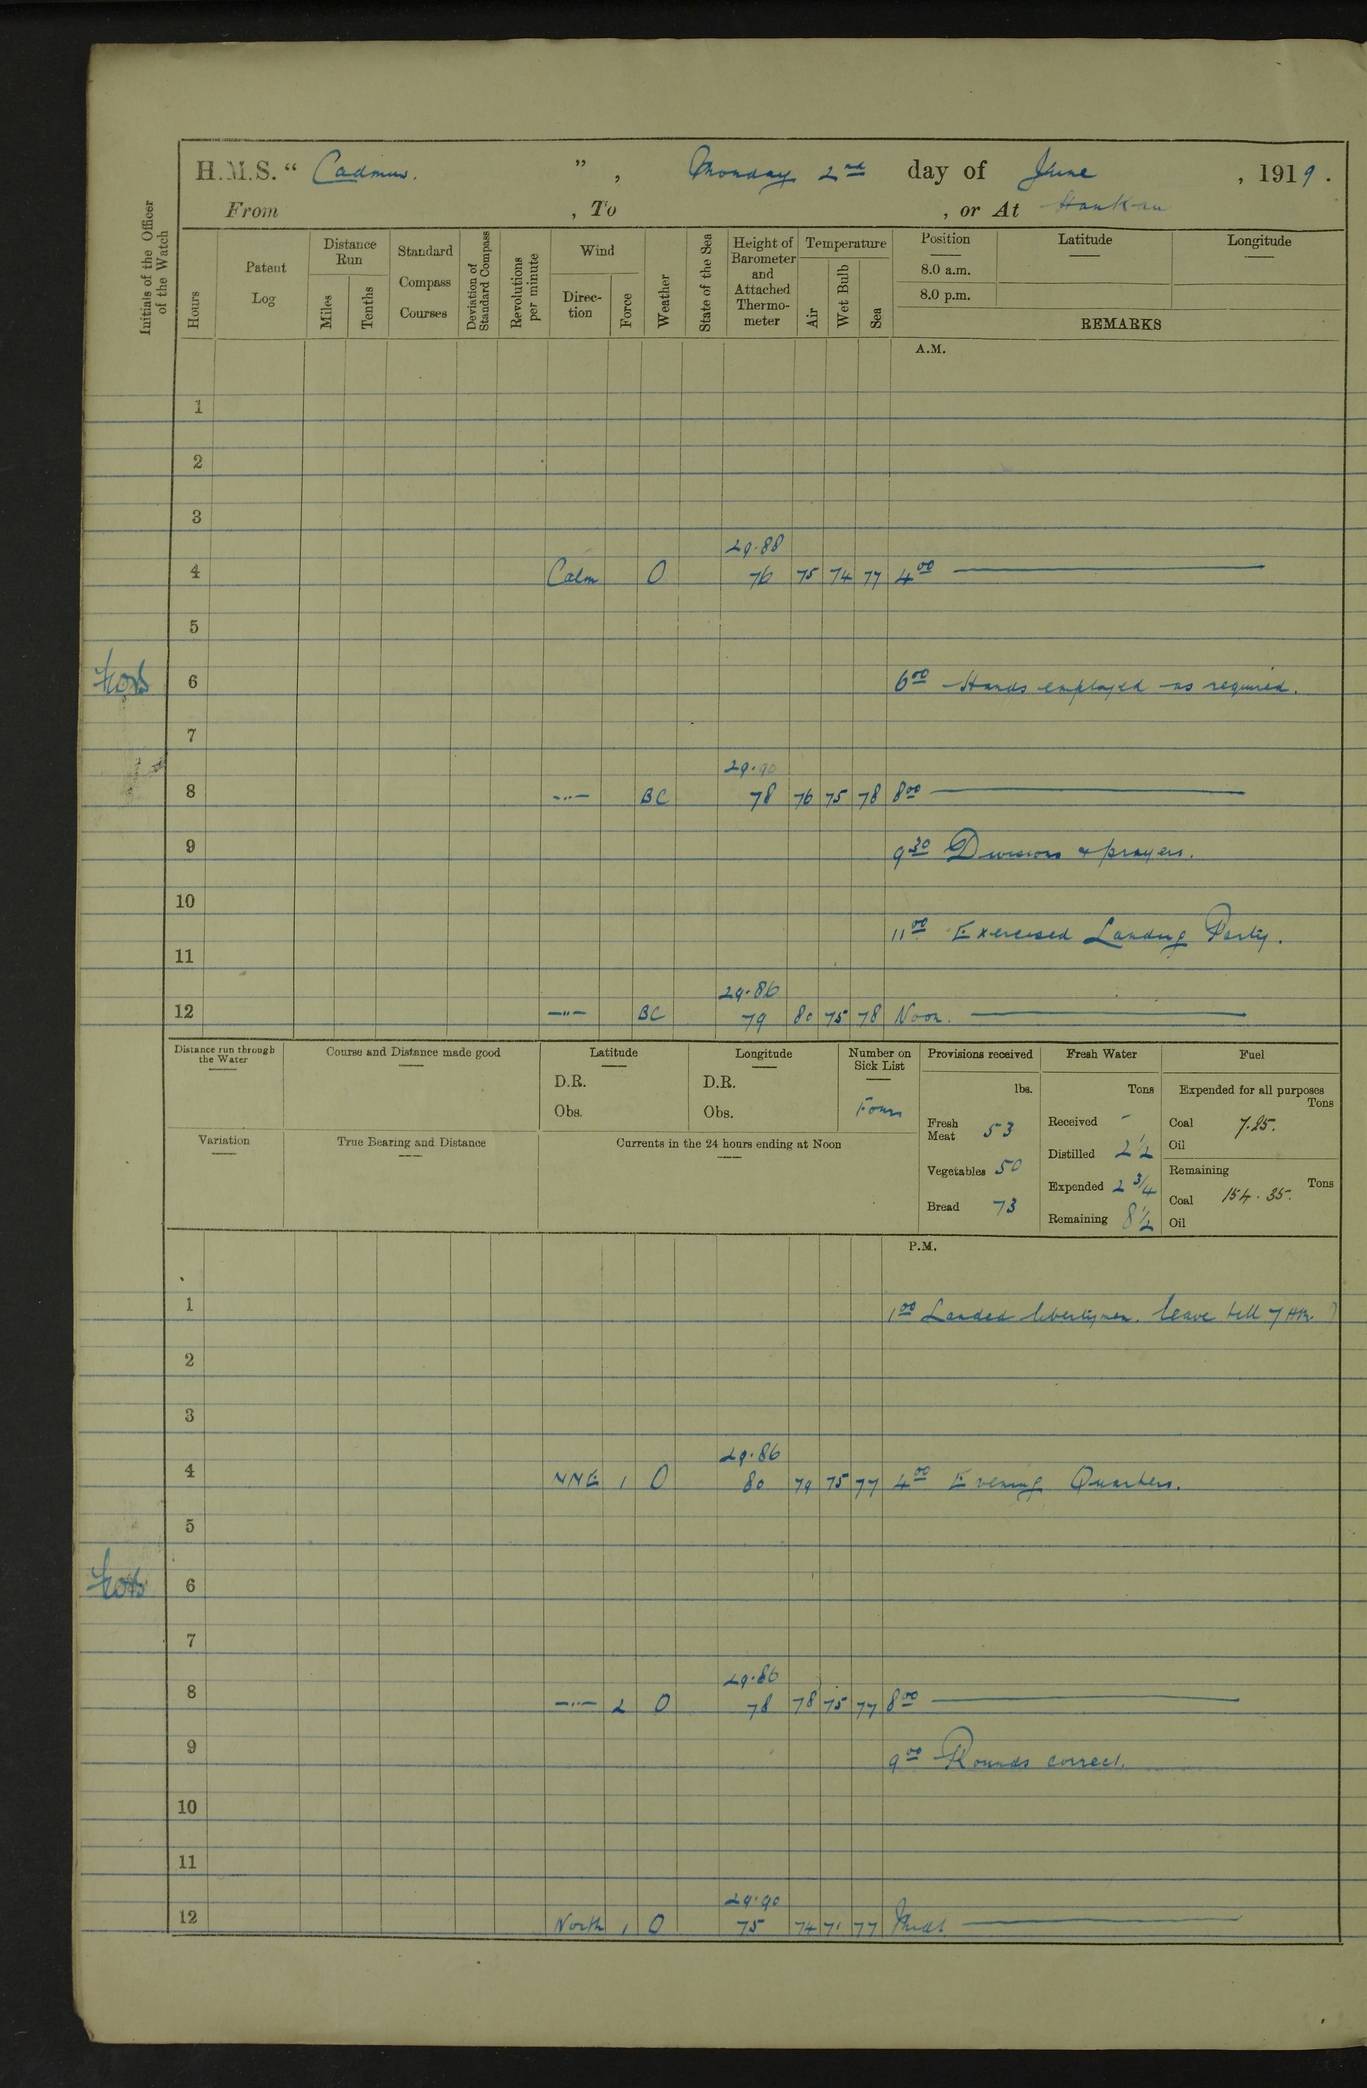 H.M.S. " Cadmus. ", Monday 2nd day of June, 1919.
From , To , or At Hankau
Initials of the Officer of the Watch
Hours
Patent Log
Distance Run
Miles
Tenths
Standard Compass Courses
Deviation of Standard Compass
Revolutions per minute
Wind
Direction
Force
Weather
State of the Sea
Height of Barometer and Attached Thermometer
Temperature
Air
Wet Bulb
Sea
Position
8.0 a.m.
8.0 p.m.
Latitude
Longitude
REMARKS
A.M.
1
2
3
29.88
4 Calm O 76 75 74 77 4 00 ———
5
6 6 00 Hands employed as required.
7
29.90
8 —"— BC 78 76 75 78 8 00 ———
9 9 30 Divisions & prayers.
10
11 00 Exercised Landing Party.
11
29.86
12 —"— BC 79 80 75 78 Noon. ———
Distance run through the Water
Course and Distance made good
Latitude
D.R.
Obs.
Longitude
D.R.
Obs.
Number on Sick List
Four
Variation
True Bearing and Distance
Currents in the 24 hours ending at Noon
Provisions received
lbs.
Fresh Meat 53
Vegetables 50
Bread 73
Fresh Water
Tons
Received -
Distilled 2 1/2
Expended 2 3/4
Remaining 8 1/2
Fuel
Expended for all purposes
Tons
Coal 7.25.
Oil
Remaining
Tons
Coal 154.35.
Oil
P.M.
1 1 00 Landed libertymen. leave till 7 AM.
2
3
29.86
4 NNE 1 O 80 79 75 77 4 00 Evening Quarters.
5
6
7
29.86
8 —"— 2 O 78 78 75 77 8 00 ———
9 9 00 Rounds correct.
10
11
29.90
12 North 1 O 75 74 71 77 Midt ———